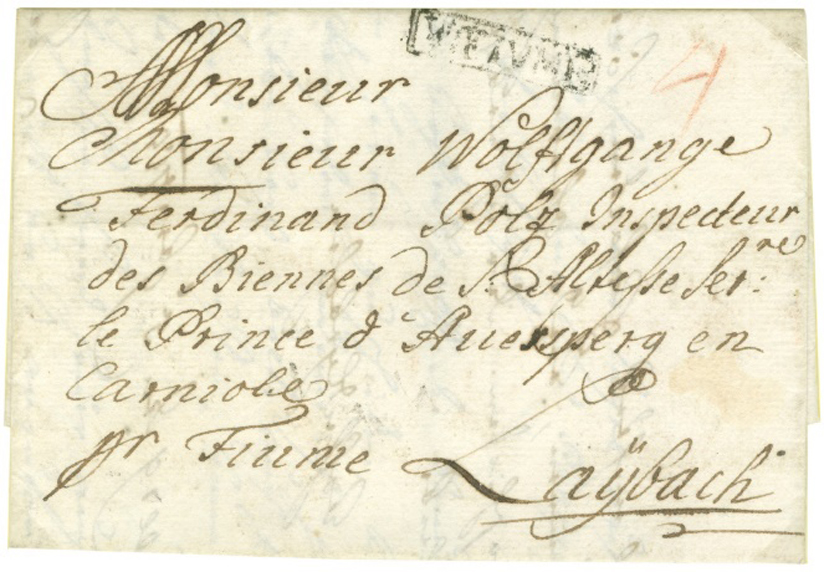 V. FIUME
4
Monsieur
Monsieur Wolffgange
Ferdinand Pölz Inspecteur
des Biennes de S. Altesse Ser:re
le Prince d'Auersperg en
Carniole
pr Fiume Laÿbach